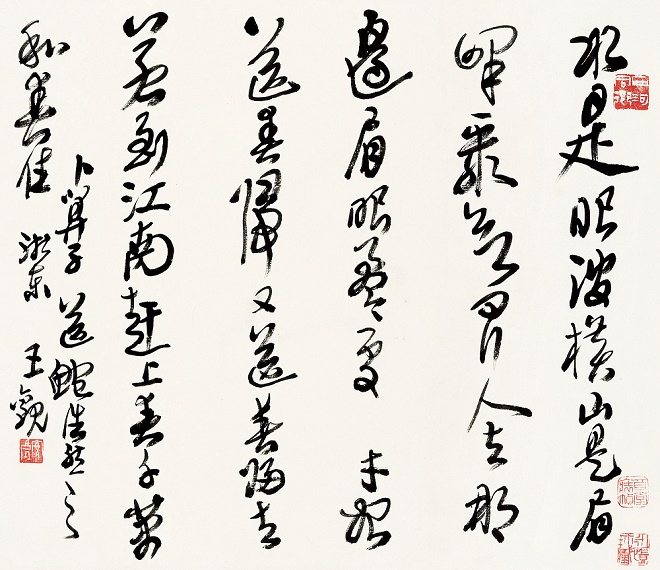 水是眼波橫山是眉
峰聚欲問行人去那
邊眉眼盈盈處 才始
送春歸又送君歸去
若到江南赶上春千萬
和春住
卜算子 送鮑浩然之
浙東 王觀